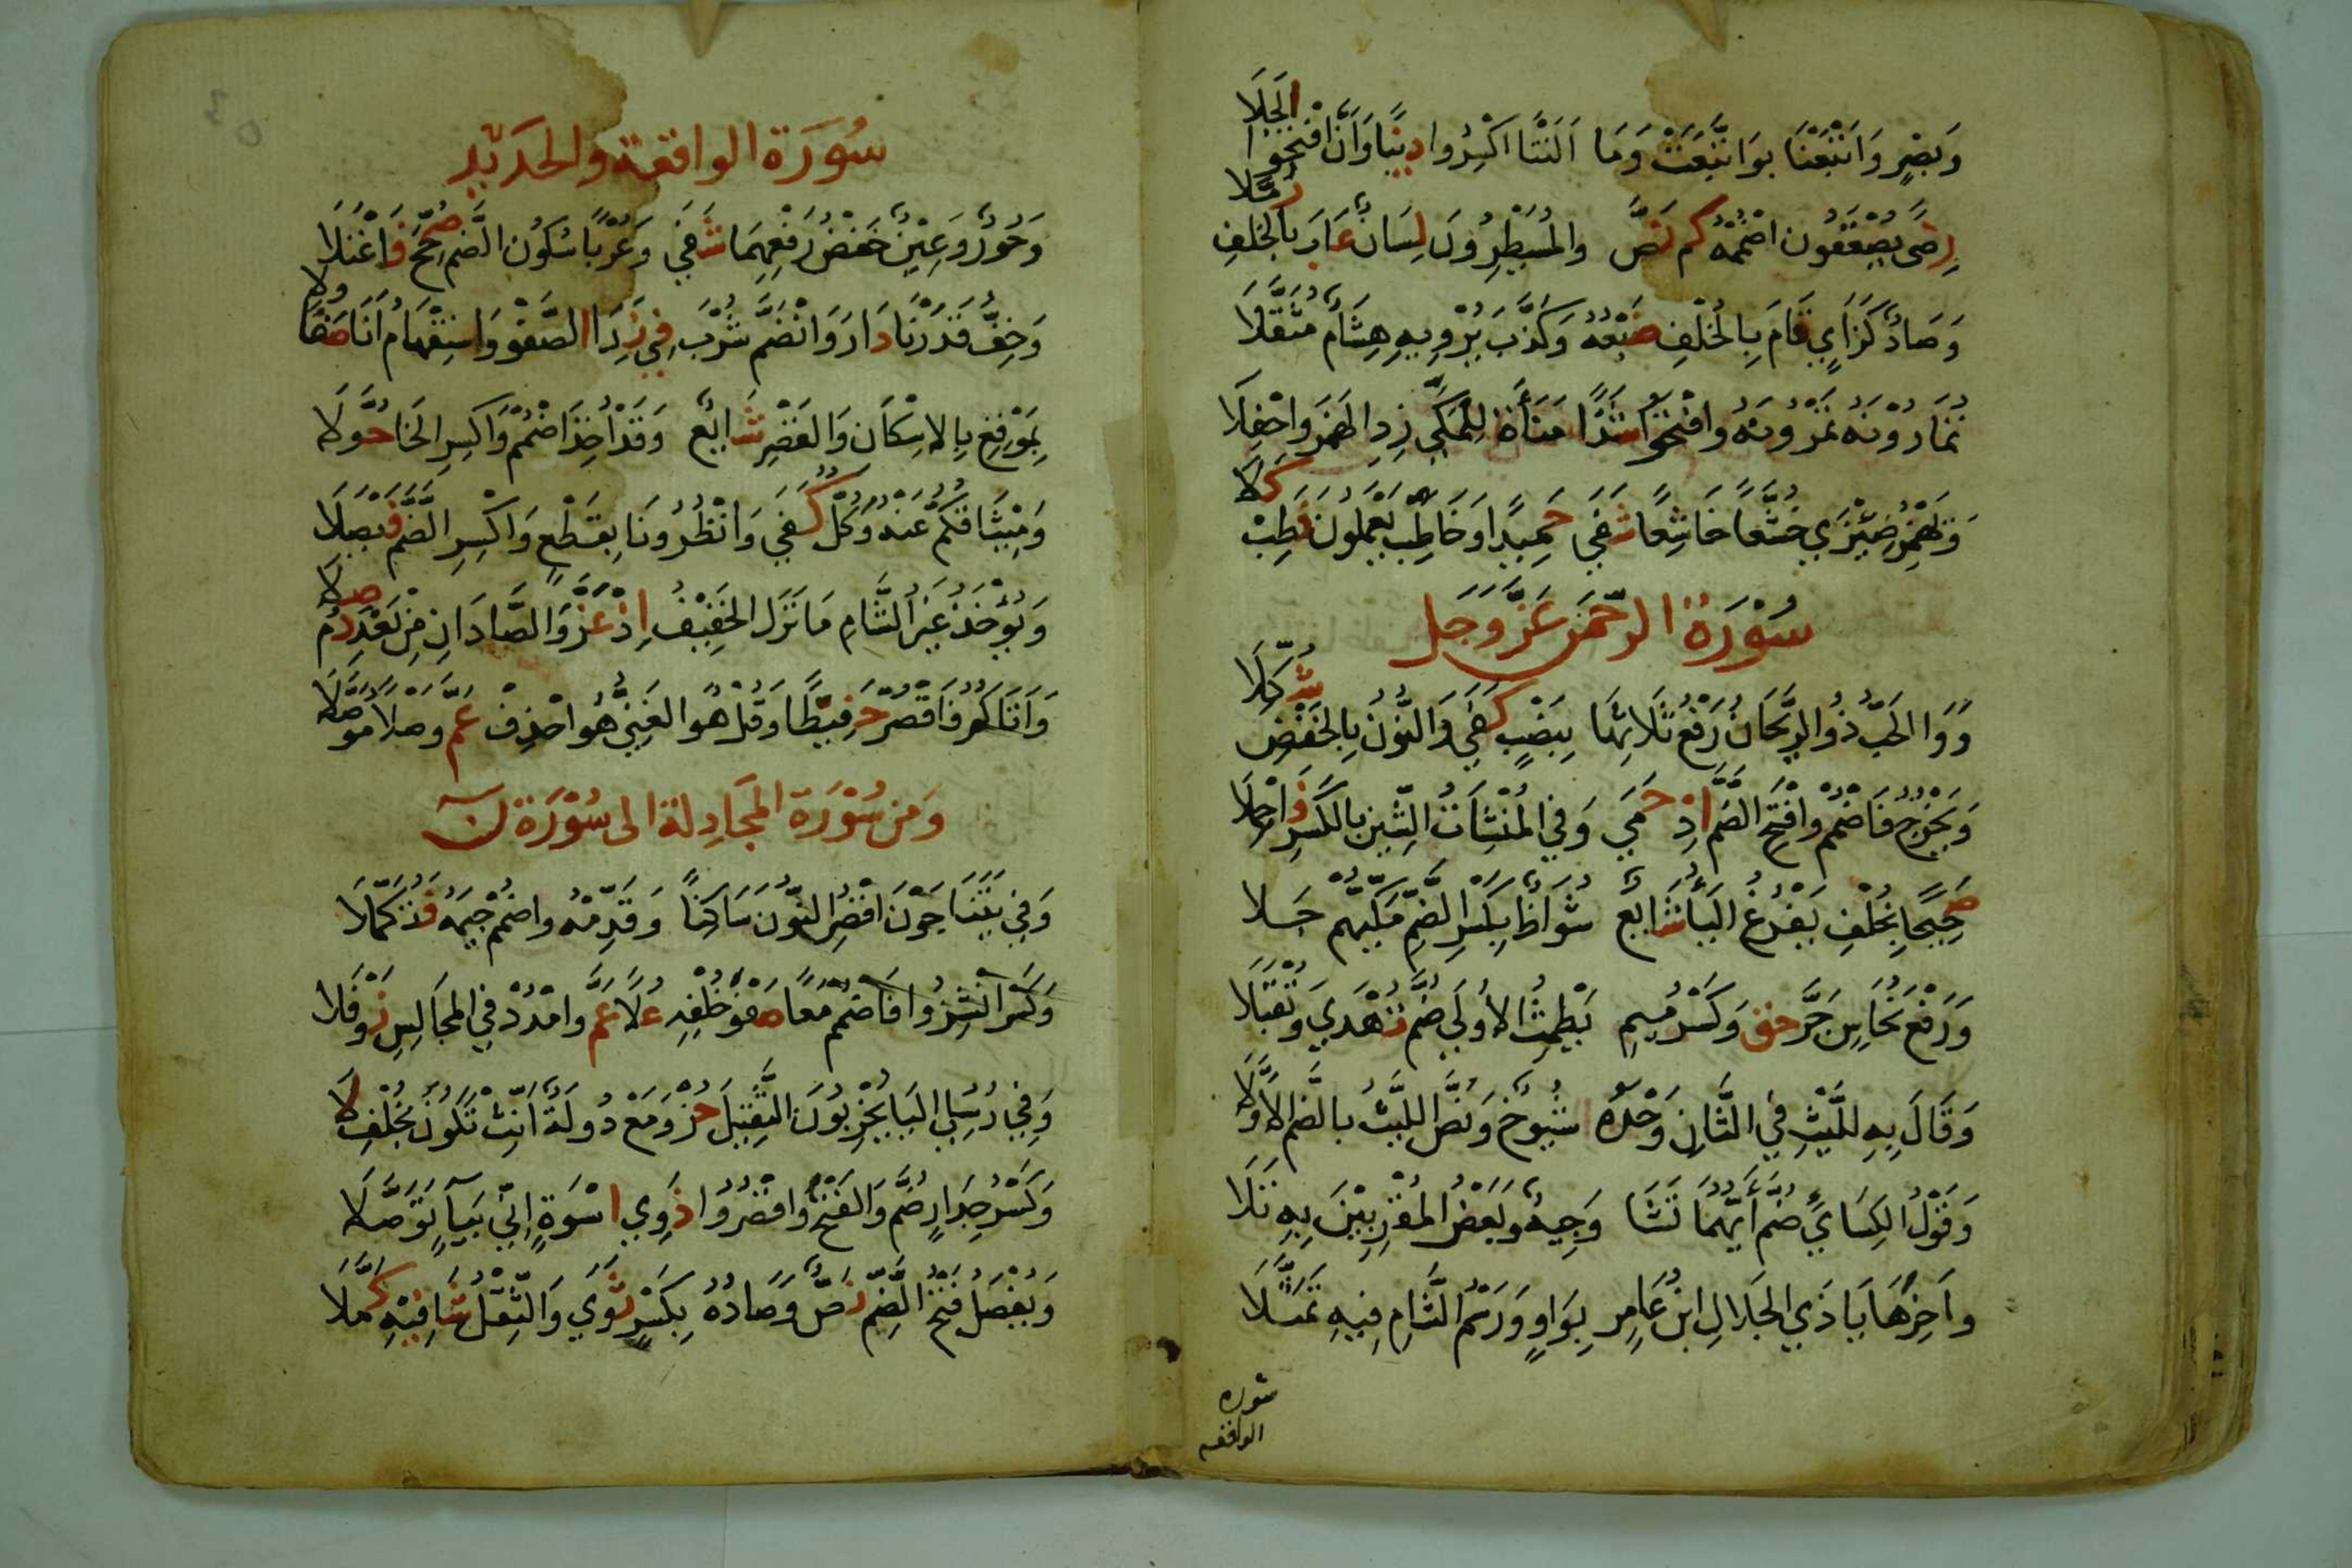 وَبَصْرٍ وَاَتْبَعْنَا بِوَاتَّبَعَتْ وَمَا اَلَتْنَا اكْسِرُوا دِنْيًا وَاَنَّ افْتَحُوا الْجَلَا
رِضَى يَصْعَقُونَ اضْمُمْهُ كَمْ نَصَّ والْمُسَيْطِرُونَ لِسَانٌ عَابَ بالْخُلْفِ زُمَّلَا
وَصَادٌ كَزَايٍ قَامَ بِالْخُلْفِ ضَبْعُهُ وَكَذَّبَ يَرْوِيهِ هِشَامٌ مُثَقَّلَا
تُمَارُونَهُ تَمْرُونَهُ وافْتَحُوا شَذًا مَنَاةَ لِلْمَكِّي زِدِ الْهَمْزَ واحْفِلَا
وَتَهْمِزُ ضِيْزَى خُشَّعًا خَاشِعًا شَفَى حَمِيدًا وَخَاطِبْ يَعْمَلُونَ فَطِبْ كَلَا
سُوْرَةُ الرَّحْمَنِ عَزَّ وَجَلَّ
وَوَا الْحَبُّ ذُو الرَّيْحَانُ رَفْعُ ثَلَاثِهَا بِنَصْبٍ كَفَى وَالنُّوْنُ بِالْخَفْضِ شُكِّلَا
وَيَخْرُجُ فَاضْمُمْ وافْتَحِ الضَّمَّ اِذْ حَمَى وَفِي الْمُنْشِاَتُ الشِّينُ بالْكَسْرِ فَاحْمِلَا
صَحِيْحًا بِخُلْفٍ يَفْرُغُ الْيَاءُ شَائِعٌ شُوَاظٌ بِكَسْرِ الضَّمِّ مَكِّيُّهُمْ جَلَا
وَرَفْعُ نُحَاسٌ جَرَّ حَقٌّ وَكَسْرُ مِيمِ يَطْمِثُ الاُولَى ضُمَّ تُهْدَى وَتُقْبَلَا
وَقَالَ بِهِ لِلَّيْثِ فِي الثَّانِ وَحْدَهُ شُيُوخٌ وَنَصُّ اللَّيْثِ بالضَّمِّ الاَوَّلَا
وَقَوْلُ الْكِسَائِيِّ ضُمَّ اَيَّهُمَا تَشَا وَجِيهٌ وَبَعْضُ الْمُقْرِئِيْنَ بِهِ تَلَا
وَاَخِرُهَا يَا ذِي الْجَلَالِ ابْنُ عَامِرٍ بِوَاوٍ وَرَسْمُ الشَّامِ فِيهِ تَمَثَّلَا
سورة
الواقعة
سُورَة الواقعة والحديد
وَحُورٌ وَعِيْنٌ خَفْضُ رَفْعِهِمَا شَفَى وَعُرْبًا سُكُونُ الضَّمِّ صُحِّحَ فَاعْتَلَا
وَخِفُّ قَدَرْنَا دَارَ وَانْضَمَّ شُرْبَ فِي نَدَا الصَّفْوِ وَاسْتِفْهَامُ اَنَّا صَفَا وِلَا
بِمَوْقِعِ بِالاِسْكَانِ وَالْقَصْرِ شَائِعٌ وَقَدْ اَخَذَ اضْمُمْ وَاكْسِرِ الْخَاءَ حُوَّلَا
وَمِيْثَاقُكُمْ عَنْهُ وَكُلٌّ كَفَى وَاَنْظِرُونَا بِقَطْعٍ وَاكْسِرِ الضَّمَّ فَيْصَلَا
وَيُوْخَذُ غَيْرُ الشَّامِ مَا نَزَلَ الْخَفِيْفُ اِذْ عَزَّ وَالصَّادَانِ مِنْ بَعْدُ دُمْ صِلَا
وَاَتَاكُمُ فَاقْصُرْ حَفِيظًا وَقُلْ هُوَ الْغَنِيُّ هُوَ احْذِفْ عَمَّ وَصْلًا مُوَصَّلَا
وَمِنْ سُوْرَةِ الْمُجَادِلَةِ الى سُوْرَةِ نٓ
وَفِي يَتَنَاجَوْنَ اقْصُرِ النُّونَ سَاكِنًا وَقَدِّمْهُ واضْمُمْ جِيْمَهُ فَتُكَمِّلَا
وَكَسْرَ انْشِزُوا فَاضْمُمْ مَعًا صَفْوَ خُلْفِهِ عُلًا عَمَّ وامْدُدْ فِي الْمَجَالِسِ نَوْفَلَا
وَفِي رُسُلِي الْيَا يُخْرِبُونَ الثَّقِيْلَ حُزْ وَمَعْ دُولَةً اَنِّثْ تَكُونَ بِخُلْفِ لَا
وَكَسْرُ جِدَارٍ ضُمَّ وَالْفَتْحَ وَاقْصُرُوا ذَوِي اُسْوَةٍ اِنِّي بِيَاءٍ تَوَصَّلَا
وَيُفْصَلُ فَتْحُ الضَّمِّ نَصٌّ وَصَادُهُ بِكَسْرٍ ثَوَى وَالثِّقْلُ شَافِيْهِ كَمَّلَا